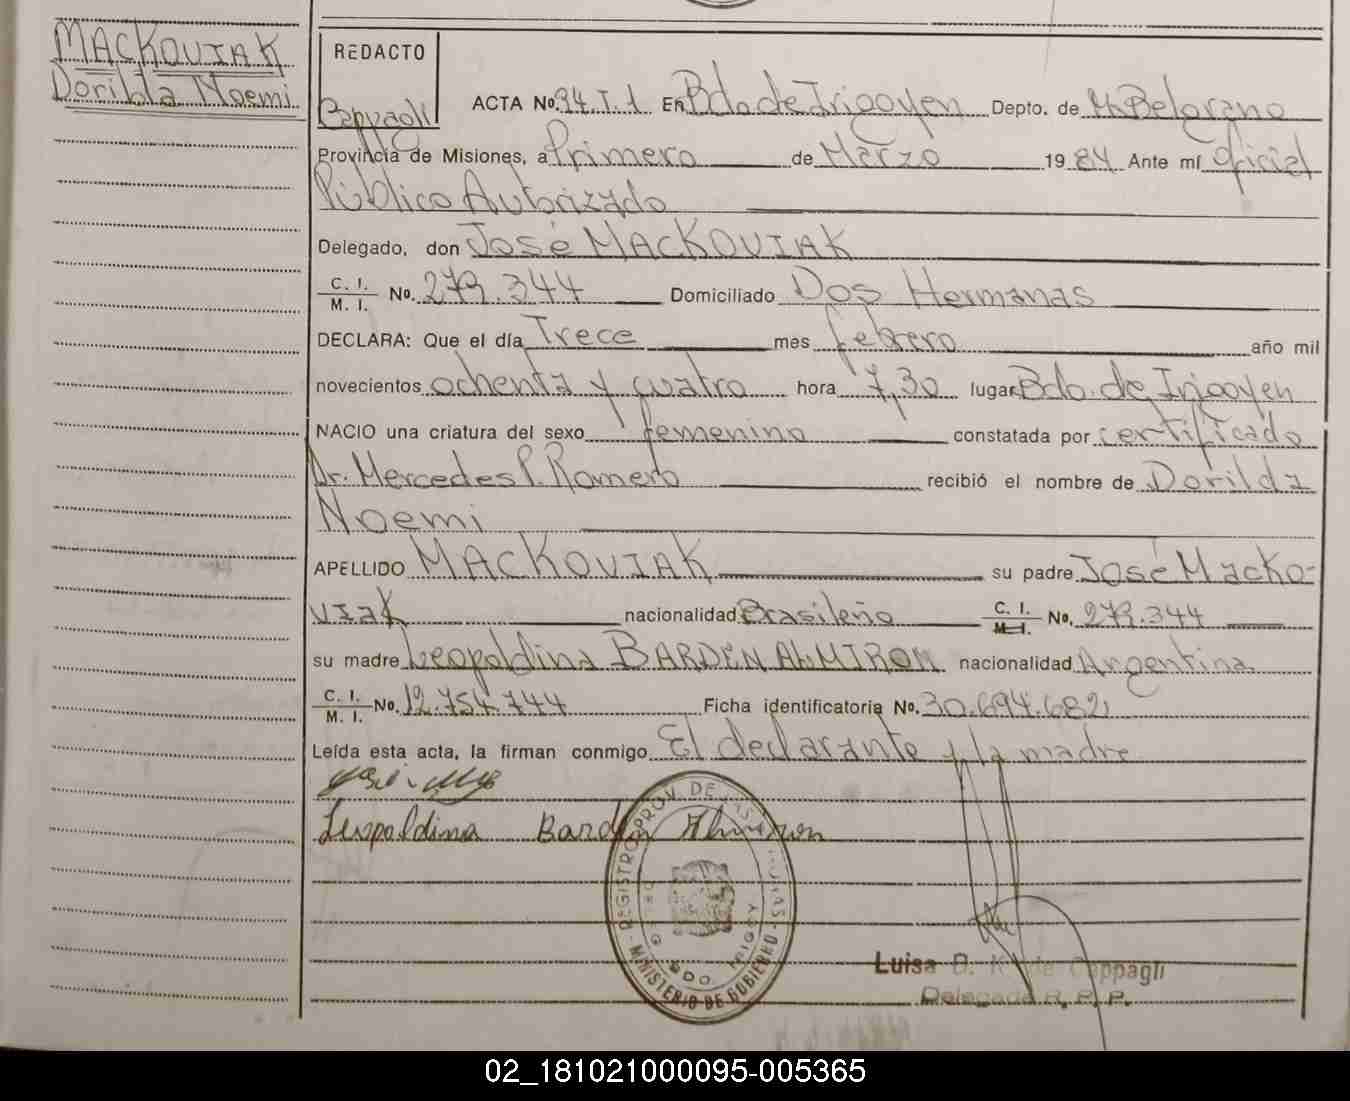 MACKOVIAK
Dorilda Noemi
REDACTO
Coppagli
ACTA No. 94.T.1 En Bdo. de Irigoyen Depto. de M. Belgrano
Provincia de Misiones, a Primero de Marzo 1984 Ante mí Oficial
Público Autorizado
Delegado, don José MACKOVIAK
C. I.
M. I. No. 279.344 Domiciliado Dos Hermanas
DECLARA: Que el día Trece mes febrero año mil
novecientos ochenta y cuatro hora 7,30 lugar Bdo. de Irigoyen
NACIO una criatura del sexo femenino constatada por certificado
Dr. Mercedes P. Romero recibió el nombre de Dorilda
Noemi
APELLIDO MACKOVIAK su padre José Macko-
viak nacionalidad Brasileño C. I. M. I. No. 279.344
su madre Leopoldina BARDEN ALMIRON nacionalidad Argentina
C. I.
M. I. No. 12.754.744 Ficha identificatoria No. 30.694.682
Leída esta acta, la firman conmigo El declarante y la madre
Leopoldina Barden Almiron
REGISTRO PROV. DE LAS PERSONAS
MINISTERIO DE GOBIERNO
BDO. IRIGOY
Luisa D. K. de Coppagli
Delegada R. P. P.
02_181021000095-005365